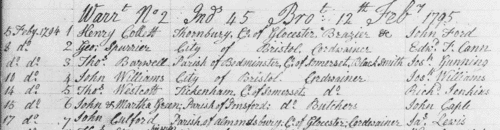 Warr.t No 2 Ind.s 45 Bro.t 12.th Feb.y 1795
5 Feb.y 1794 1 Henry Collett Thornbury, C.o of Glocester Brazier &c John Ford
8 d.o 2 Geo. Spurrier City of Bristol Cordwainer Edw.d F. Cann
d.o d.o 3 Tho.s Barwell Parish of Bedminster, C.o of Somerset, Black Smith Jos.h Gunning
10 d.o 4 John Williams City of Bristol. Cordwainer Jos.h Williams
14 d.o 5 Tho.s Westcott Tickenham, C. of Somerset d.o Rich.d Jenkins
15 d.o 6 John & Martha Green; Parish of d.o Butchers John Caple
17 d.o 7 John Parish of Almondsbury, C. of Glocester; Cordwainer Ja.s Lewis